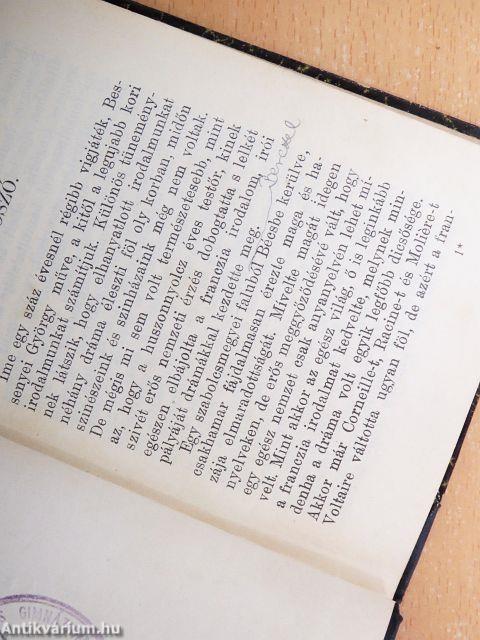 SZÓ.
Ime egy száz évesnél régibb vigjáték, Bes-
senyei György műve, a kitől a legujabb kori
irodalmunkat számítjuk. Különös tünemény-
nek látszik, hogy elhanyatlott irodalmunkat
néhány dráma éleszti föl oly korban, midőn
szinészeink és szinházaink még nem voltak.
De mégis mi sem volt természetesebb, mint
az, hogy a huszonnyolcz éves testőr, kinek
szivét erős nemzeti érzés dobogtatta s lelkét
egészen elbájolta a franczia irodalom, írói
pályáját drámákkal kezdette meg.
Egy szabolcsmegyei faluból Bécsbe kerülve,
csakhamar fájdalmasan érezte maga és ha-
zája elmaradottságát. Mívelte magát idegen
nyelveken, de erős meggyőződésévé vált, hogy
egy egész nemzet csak anyanyelvén lehet mi-
velt. Mint akkor az egész világ, ő is leginkább
a franczia irodalmat kedvelte, melynek min-
denha a dráma volt egyik legfőbb dicsősége.
Akkor már Corneille-t, Racine-t és Molière-t
Voltaire váltotta ugyan föl, de azért a fran-
1*
GIMN
Antikvárium.hu